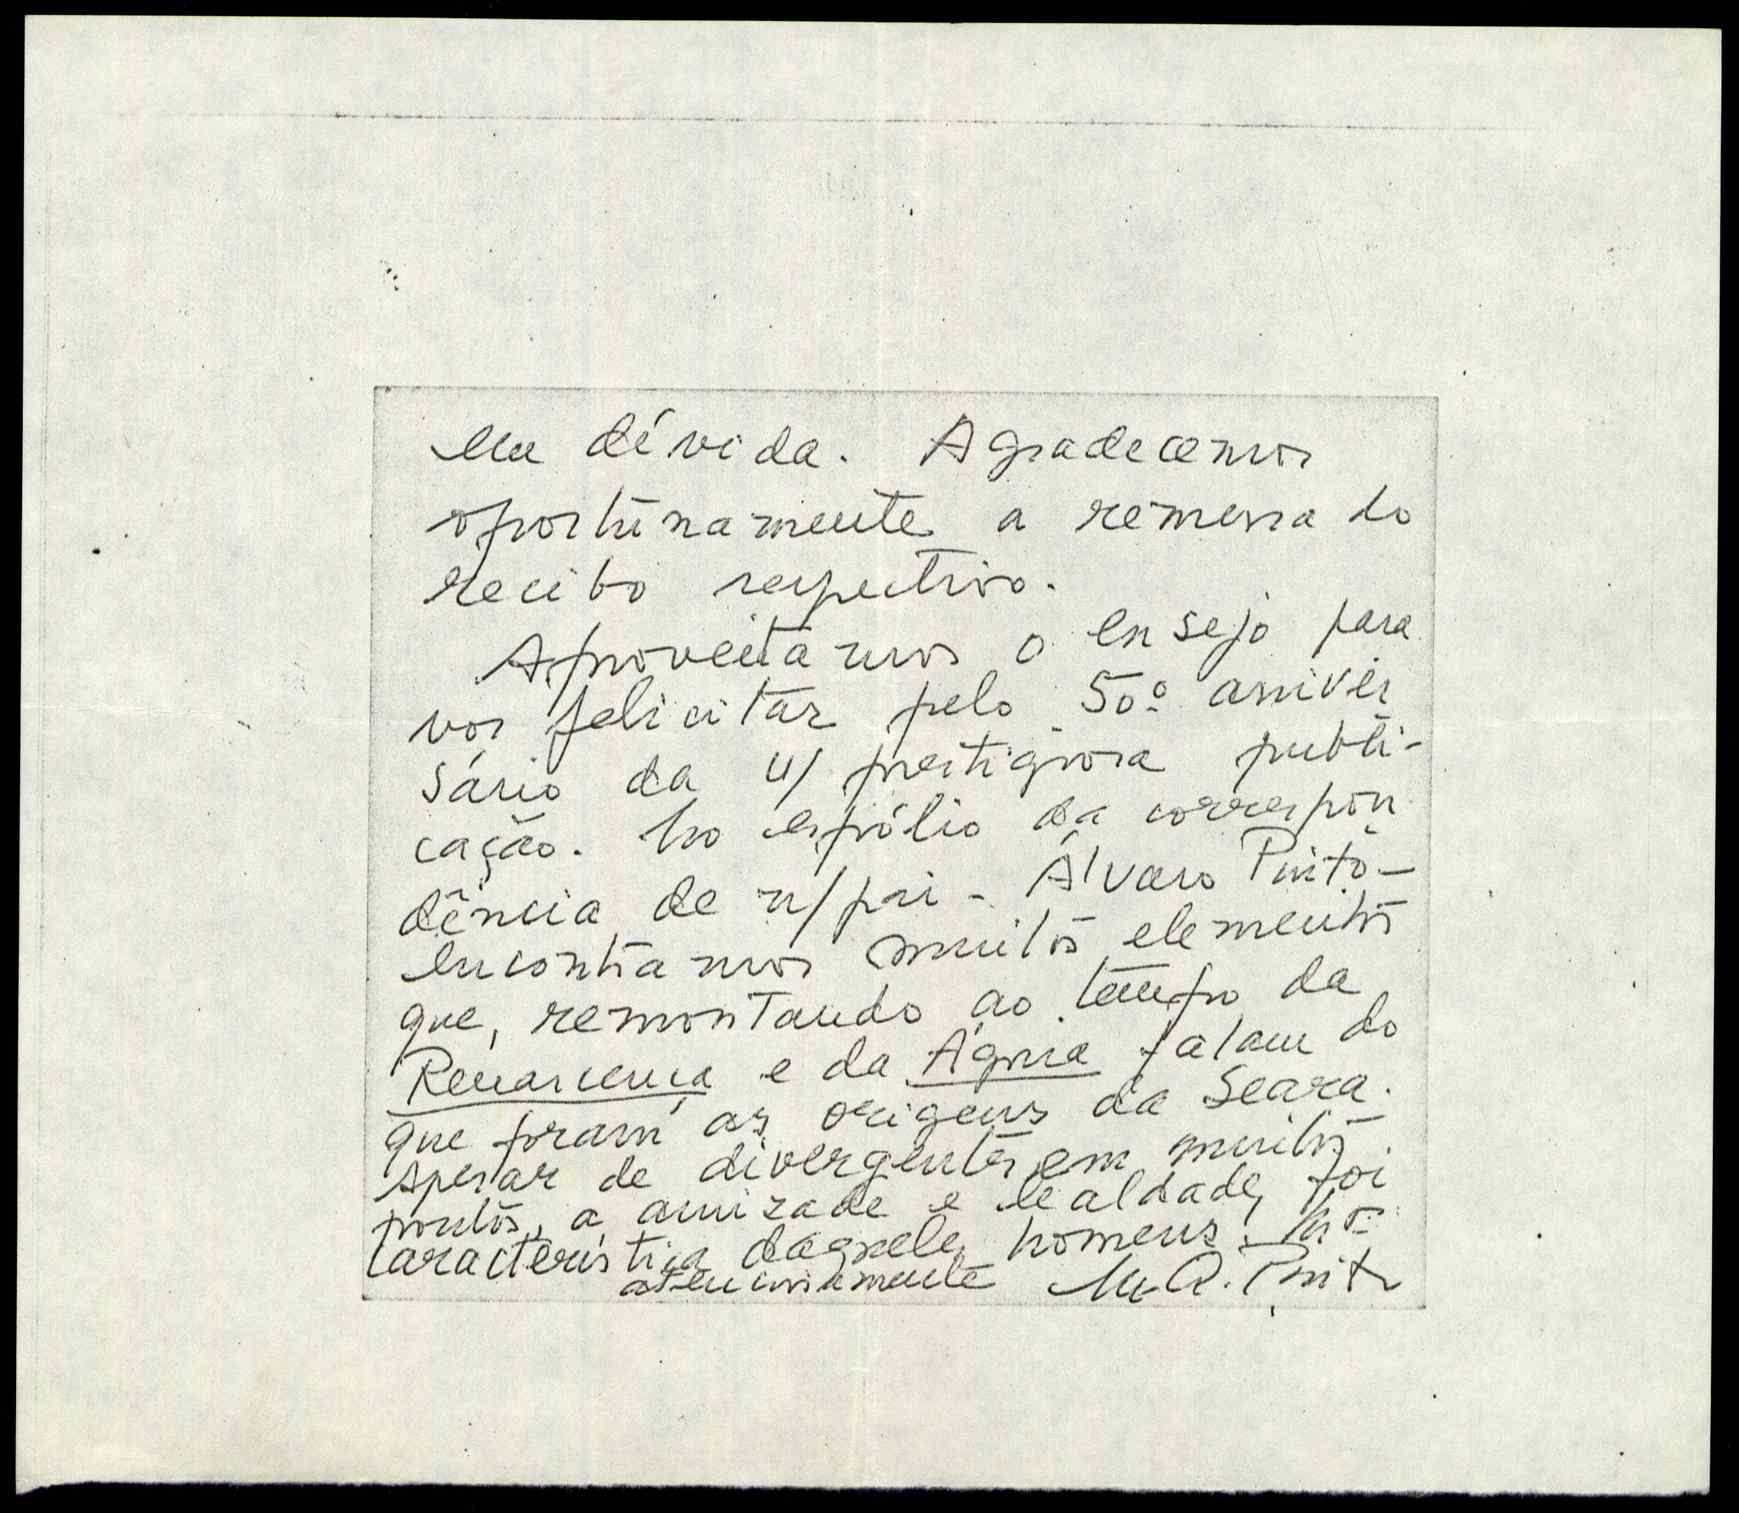 em dívida. Agradecemos
oportunamente a remessa do
recibo respectivo.
Aproveitamos o ensejo para
vos felicitar pelo 50º aniver
sário da v/ prestigiosa publi-
cação. No espólio da correspon
dência de n/pai - Álvaro Pinto -
encontramos muitos elementos
que, remontando ao tempo da
Renascença e da Águia falam do
que foram as origens da Seara.
Apesar de divergentes em muitos
pontos, a amizade e lealdade, foi
característica daqueles homens.
atenciosamente M. A. Pinto